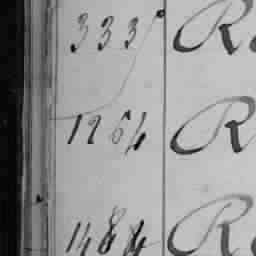 333 R
1264 R
1484 R